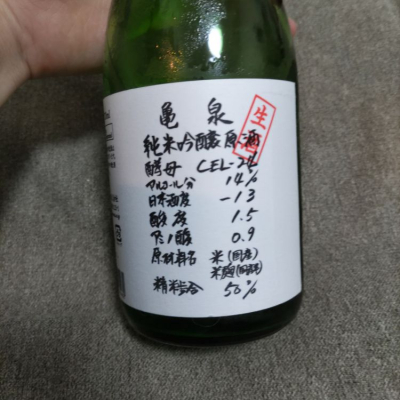 亀泉
生酒
純米吟醸原酒
酵母 CEL-24
アルコール分 14%
日本酒度 -13
酸度 1.5
アミノ酸 0.9
原材料名 米(国産)
米麹(国産米)
精米歩合 50%